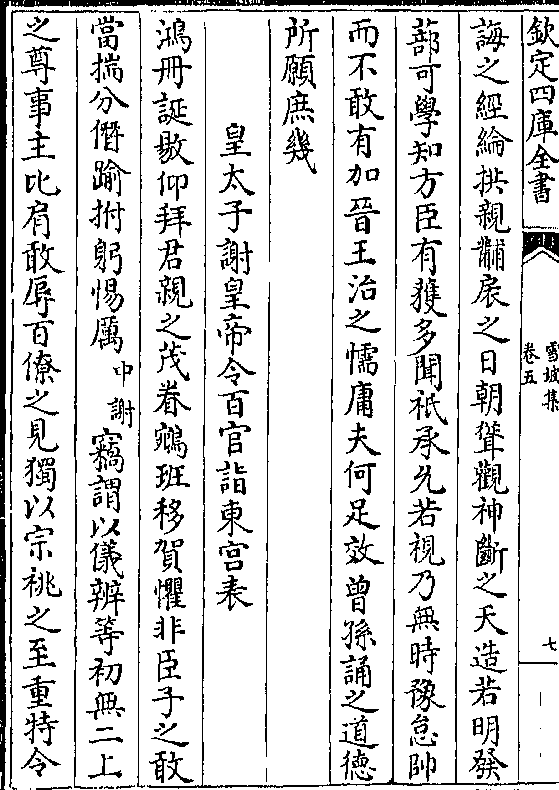 欽定四庫全書
雪坡集
卷五
七
誨之經綸拱親黼扆之日朝聳觀神斷之天造若明發
蔀可學知方臣有獲多聞祇承允若視乃無時豫怠帥
而不敢有加晉王治之懦庸夫何足效曾孫誦之道德
所願庶幾
皇太子謝皇帝令百官詣東宮表
鴻冊誕敭仰拜君親之茂眷鵷班移賀懼非臣子之敢
當揣分僭踰拊躬惕厲中謝竊謂以儀辨等初無二上
之尊事主比肩敢辱百僚之見獨以宗祧之至重特令